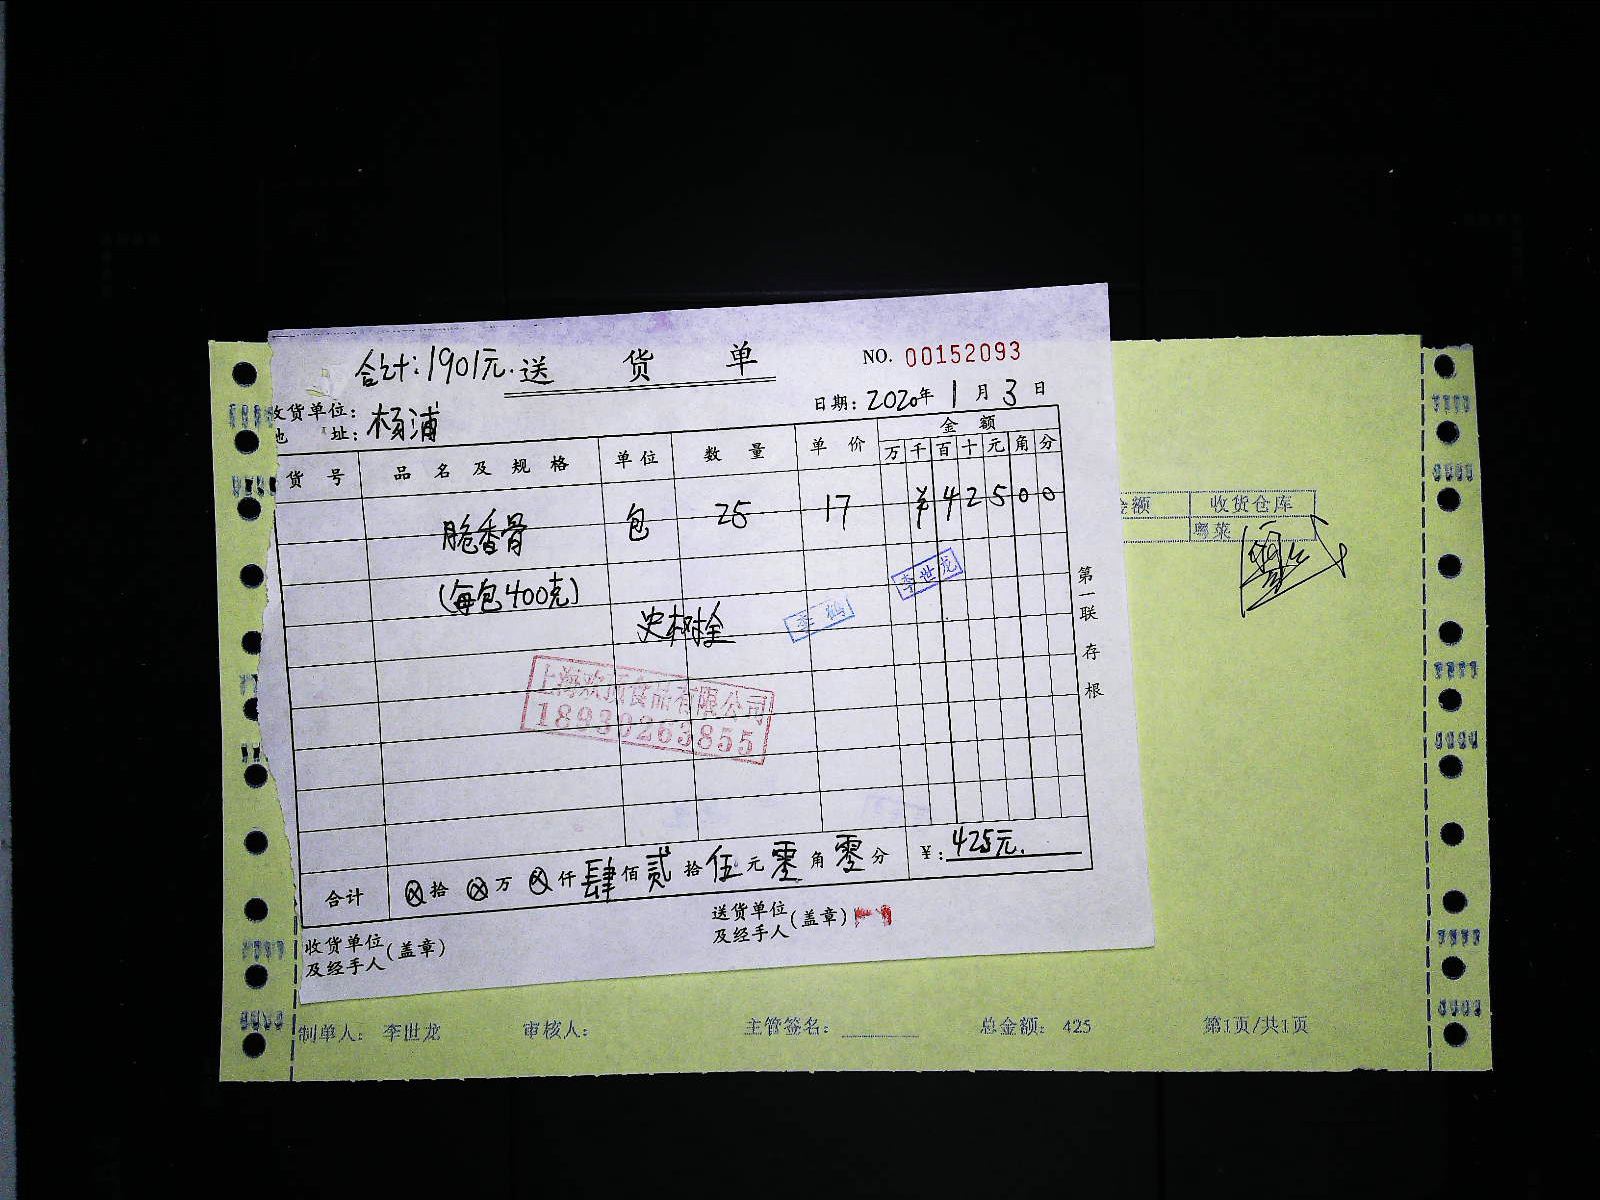 合计:1901元.送 货 单 NO. 00152093
收货单位:
地 址: 杨浦 日期: 2020年 1 月 3 日
货 号 品 名 及 规 格 单位 数 量 单 价 金 额
万 千 百 十 元 角 分
脆香骨 包 25 17 ¥ 4 2 5 0 0
(每包400克)
史树拴 李鹤 李世龙
上海欢顶食品有限公司
18930263855
第一联 存根
合计 ⊗拾 ⊗万 ⊗仟肆佰贰拾伍元零角零分 ¥: 425元.
收货单位
及经手人(盖章)
送货单位
及经手人(盖章)
金额 收货仓库
粤菜
制单人: 李世龙 审核人: 主管签名: 总金额: 425 第1页/共1页